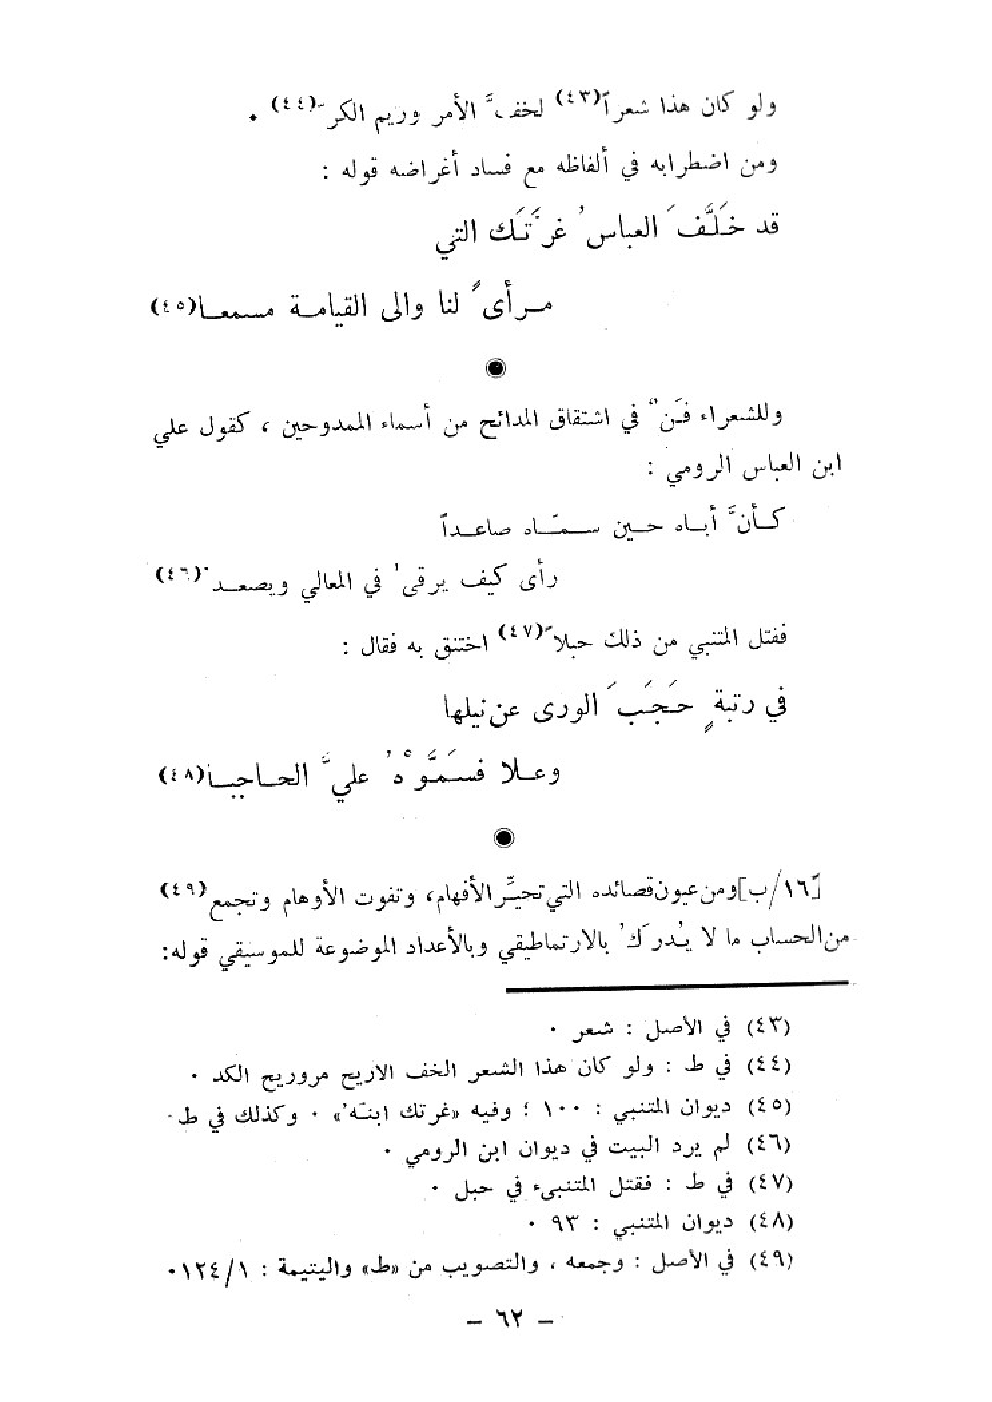 ولو كان هذا شعراً(٤٣) لخفَّ الأمر وريم الكرَ(٤٤) ٠
ومن اضطرابه في ألفاظه مع فساد أغراضه قوله :
قد خَلَّفَ العباسُ غرَّتَك التي
مرأىً لنا والى القيامة مسمعا(٤٥)
وللشعراء فَنٌ في اشتقاق المدائح من أسماء الممدوحين ، كقول علي
ابن العباس الرومي :
كأنَّ أباه حين سمّاه صاعداً
رأى كيف يرقىُ في المعالي ويصعدُ(٤٦)
ففتل المتنبي من ذلك حبلاً(٤٧) اختنق به فقال :
في رتبةٍ حَجَبَ الورى عن نيلها
وعلا فسَمَّوْهُ عليَّ الحاجبا(٤٨)
[١٦/ب] ومن عيون قصائده التي تحيِّر الأفهام، وتفوت الأوهام وتجمع(٤٩)
من الحساب ما لا يُدركُ بالارتماطيقي وبالأعداد الموضوعة للموسيقي قوله:
(٤٣) في الأصل : شعر ٠
(٤٤) في ط : ولو كان هذا الشعر الخف الاريح مروريح الكد ٠
(٤٥) ديوان المتنبي : ١٠٠ ؛ وفيه «غرتك ابنَه» ٠ وكذلك في ط٠
(٤٦) لم يرد البيت في ديوان ابن الرومي ٠
(٤٧) في ط : فقتل المتنبىء في حبل ٠
(٤٨) ديوان المتنبي : ٩٣ ٠
(٤٩) في الأصل : وجمعه ، والتصويب من «ط» واليتيمة : ١٢٤/١٠
– ٦٢ –